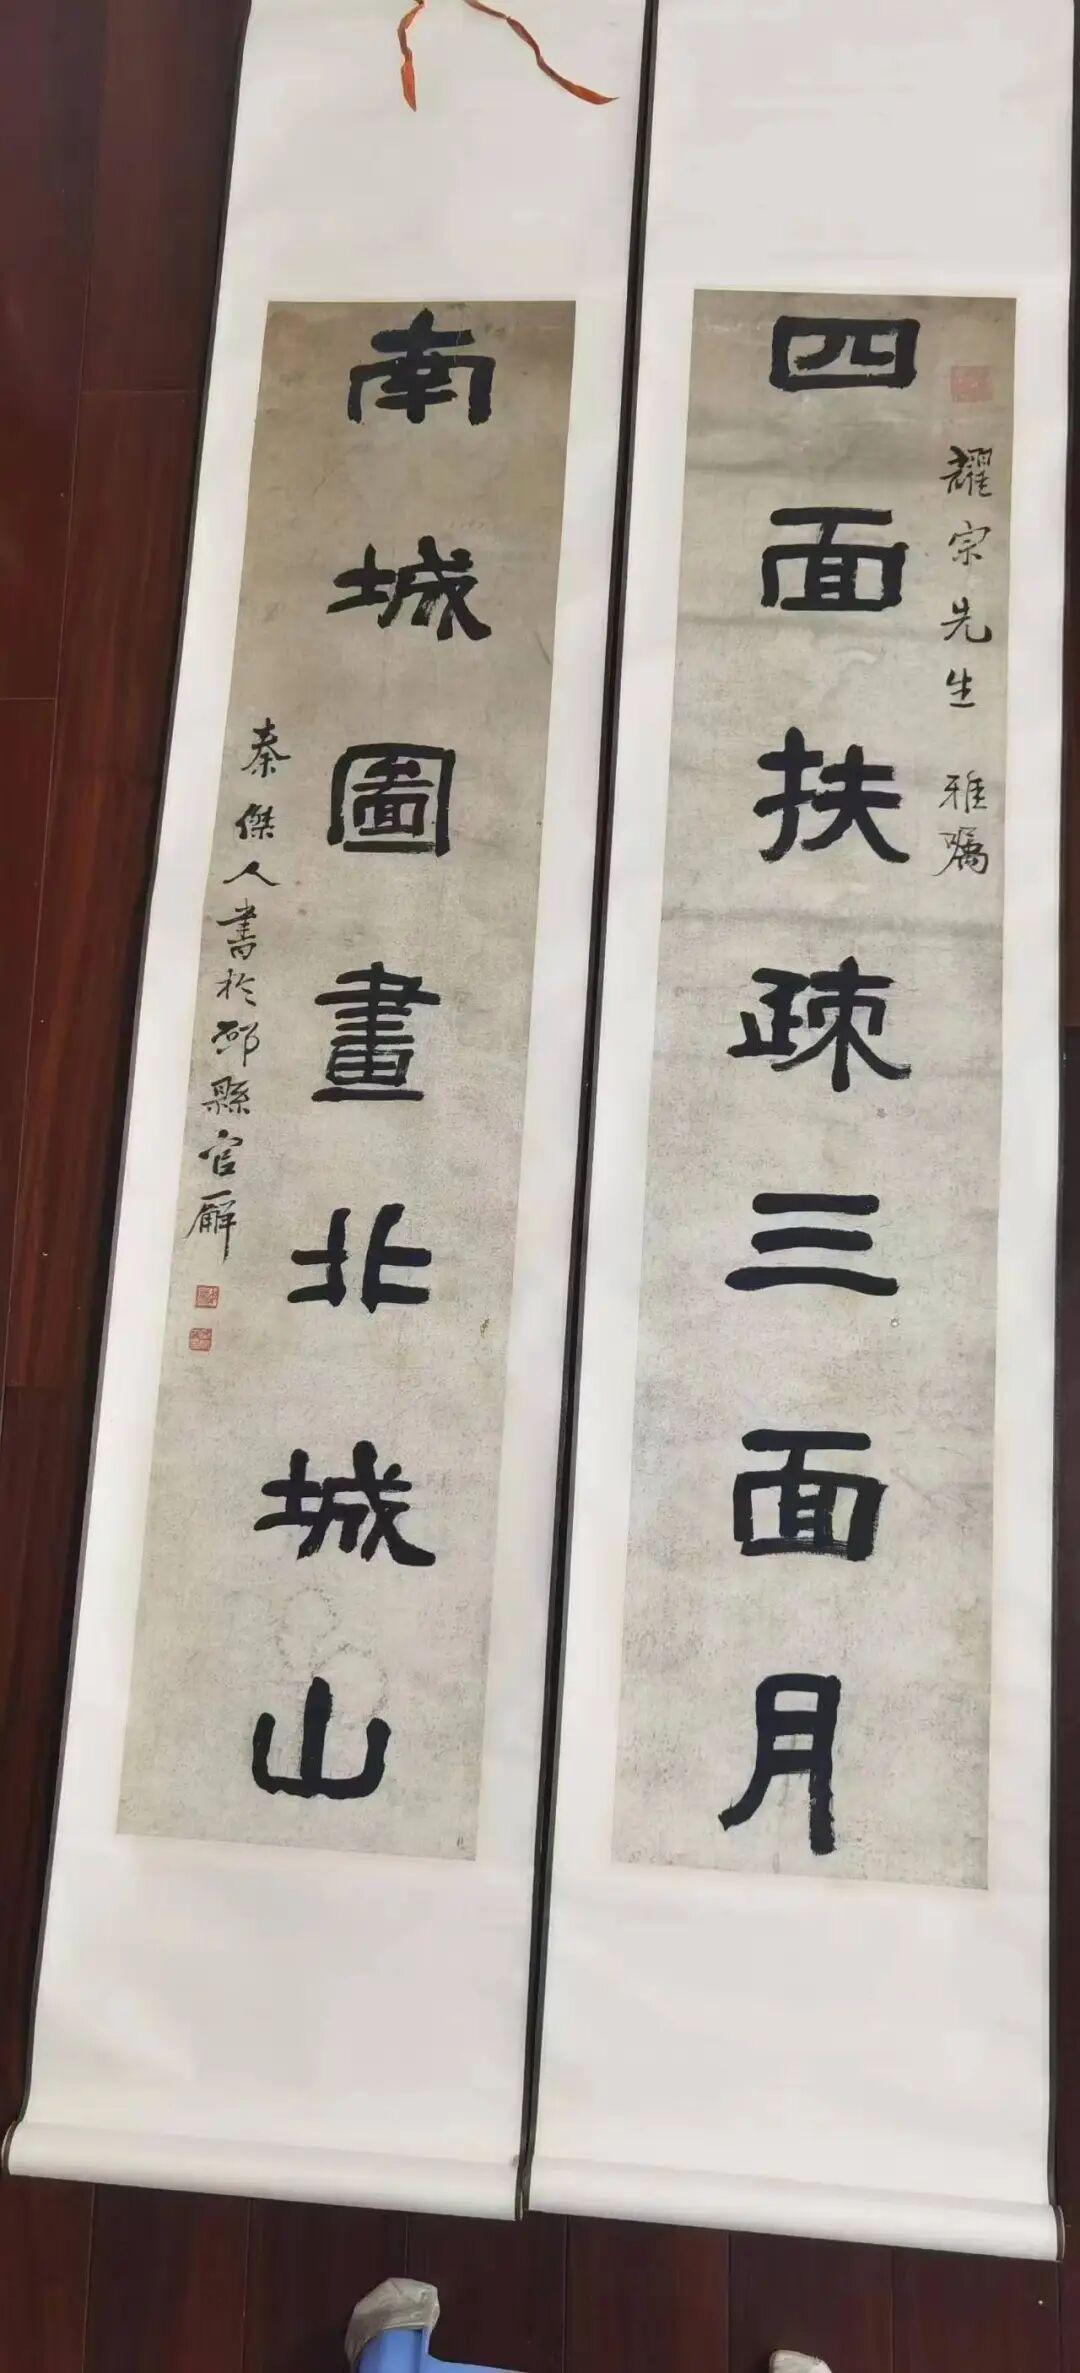 耀宗先生 雅嘱
四面扶疎三面月
南城圖畫北城山
秦傑人書於邹縣官廨